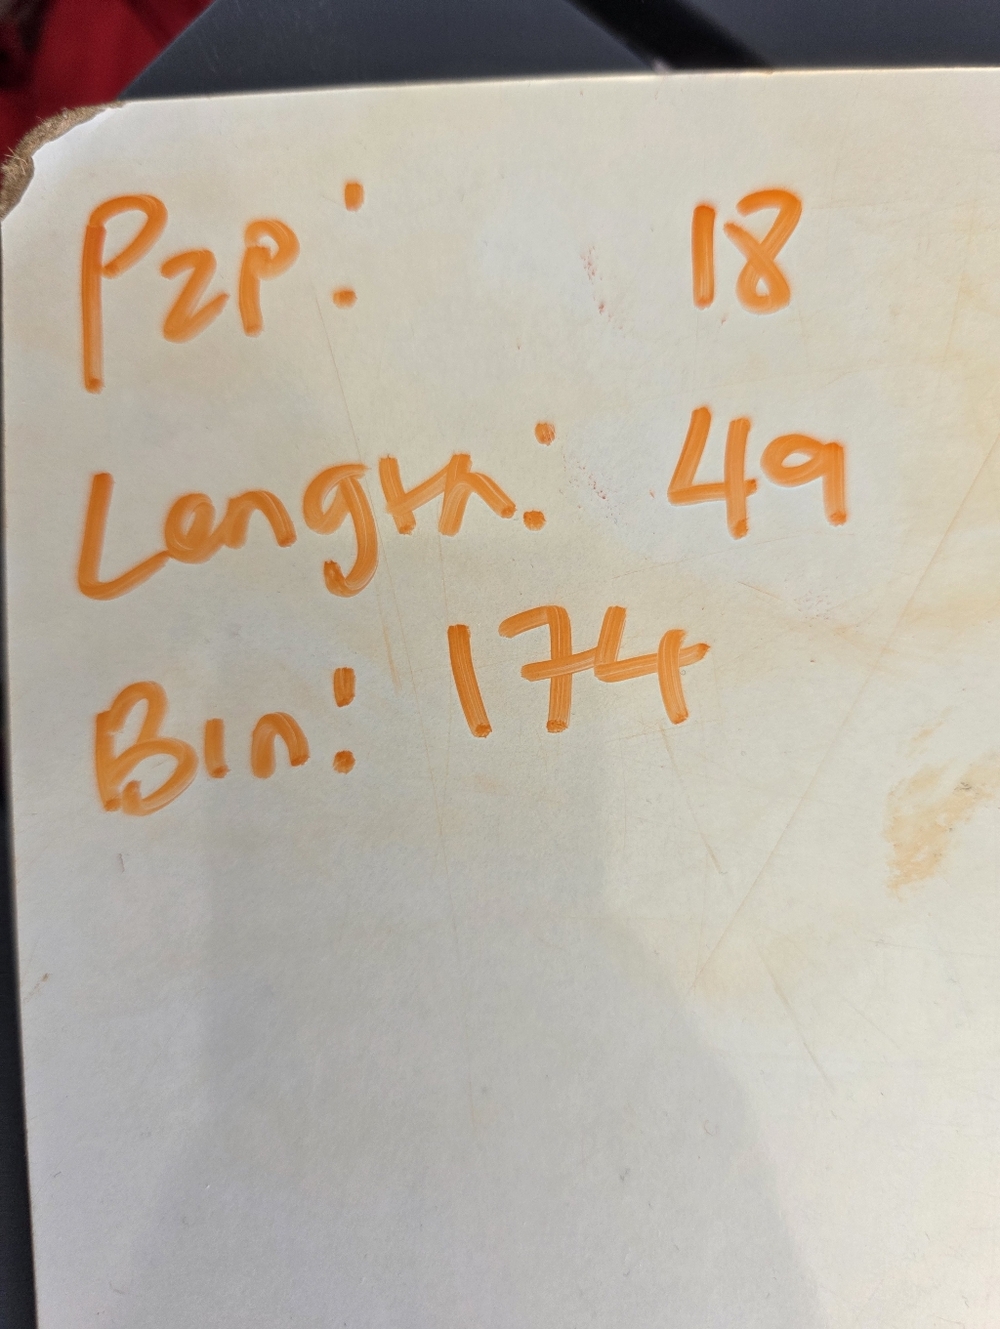 P2P: 18
Length: 49
Bin: 174